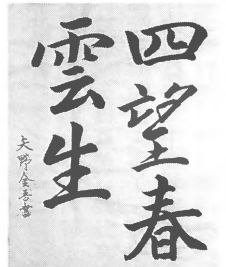 四望春
雲生
矢野金吾書